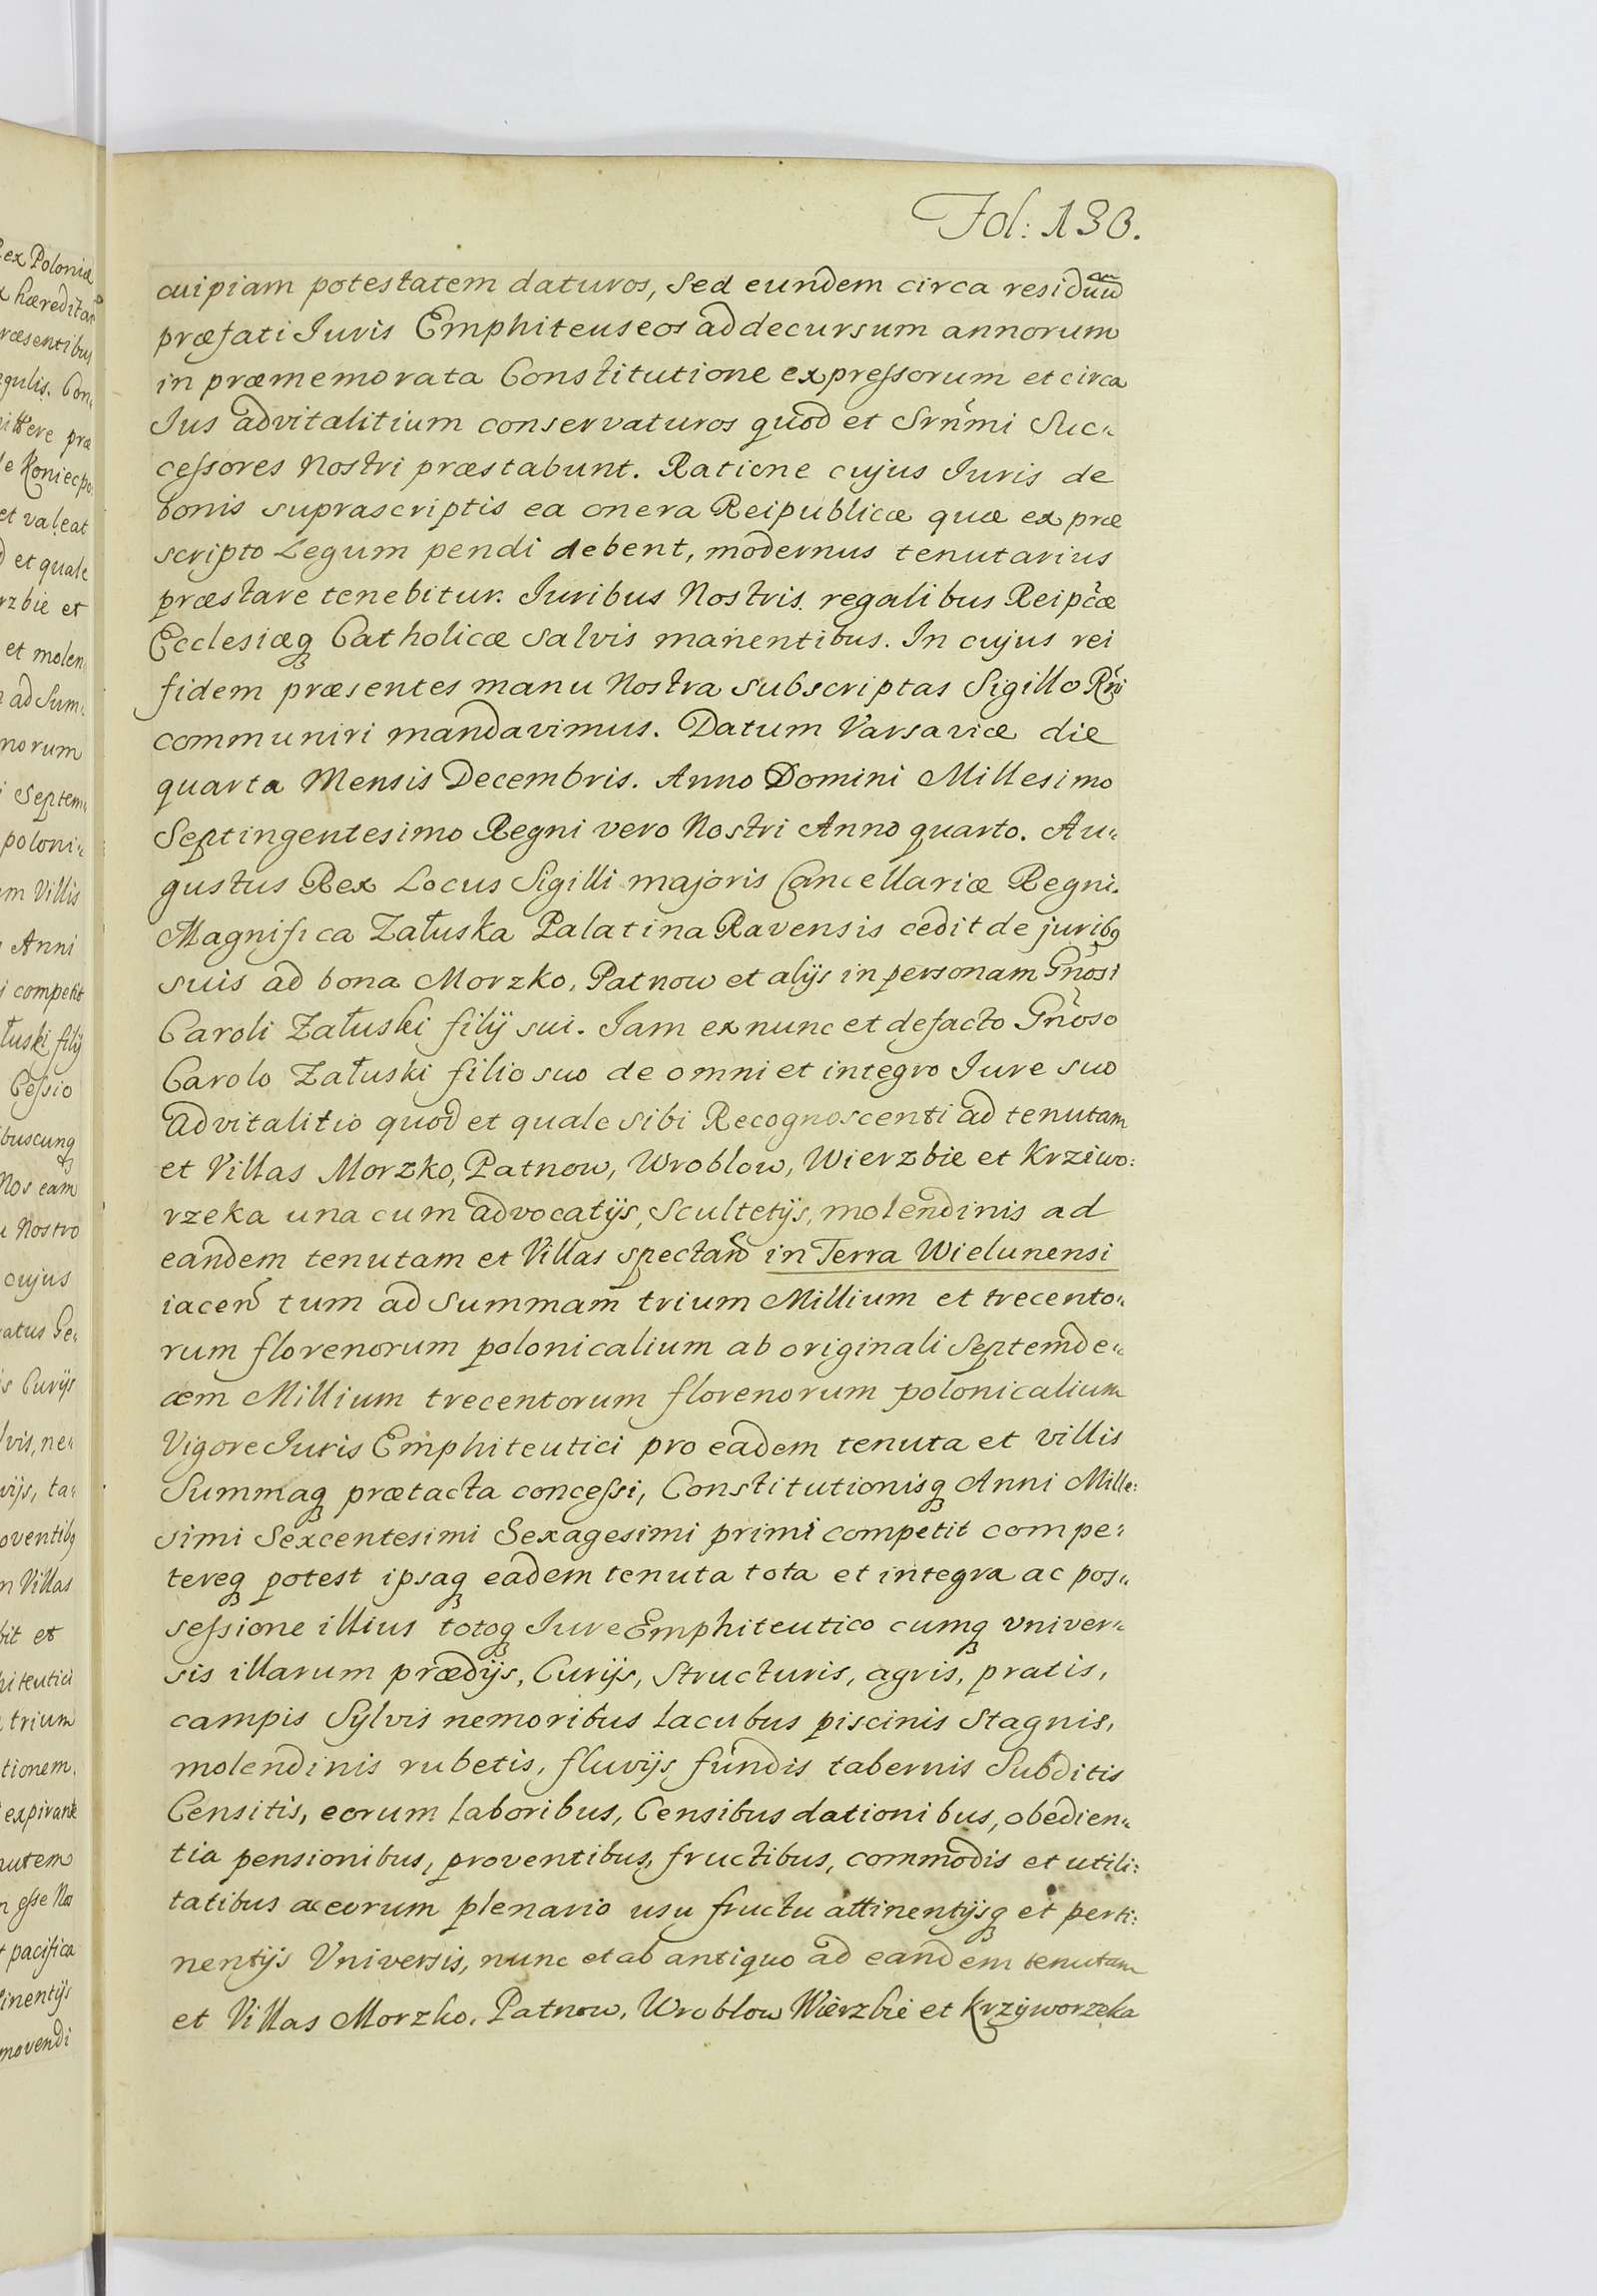 Fol: 130.
cuipiam potestatem daturos, sed eundem circa residuũ
præfati Iuris Emphiteuseos ad decursum annorum
in præmemorata Constitutione expressorum et circa
Ius advitalitium conservaturos quod et Srñmi Suc-
cessores Nostri præstabunt. Ratione cujus Iuris de
bonis suprascriptis ea onera Reipublicæ quæ ex præ
scripto Legum pendi debent, modernus tenutarius
præstare tenebitur. Iuribus Nostris regalibus Reipc̃æ
Ecclesiæq Catholicæ salvis manentibus. In cujus rei
fidem præsentes manu Nostra subscriptas Sigillo Rñi
communiri mandavimus. Datum Varsaviæ die
quarta Mensis Decembris. Anno Domini Millesimo
Septingentesimo Regni vero Nostri Anno quarto. Au-
gustus Rex Locus Sigilli majoris Cancellariæ Regni.
Magnifica Załuska Palatina Ravensis cedit de juribꝫ
suis ad bona Morzko, Patnow et alijs in personam Gñosi
Caroli Załuski filij sui. Iam ex nunc et de facto Gñoso
Carolo Załuski filio suo de omni et integro Iure suo
advitalitio quod et quale sibi Recognoscenti ad tenutam
et Villas Morzko, Patnow, Wroblow, Wierzbie et Krziwo:
rzeka una cum advocatijs, Scultetijs, molendinis ad
eandem tenutam et Villas spectañ in Terra Wielunensi
iaceñ tum ad summam trium Millium et trecento-
rum florenorum polonicalium ab originali Septemde-
cem Millium trecentorum florenorum polonicalium
Vigore Iuris Emphiteutici pro eadem tenuta et villis
Summaq prætacta concessi, Constitutionisq Anni Mille:
simi Sexcentesimi Sexagesimi primi competit compe:
tereq potest ipsaq eadem tenuta tota et integra ac pos-
sessione illius totoq Iure Emphiteutico cumq univer-
sis illarum prædijs, Curijs, structuris, agris, pratis,
campis Sylvis nemoribus lacubus piscinis stagnis,
molendinis rubetis, fluvijs fundis tabernis Subditis
Censitis, eorum laboribus, Censibus dationibus, obedien-
tia pensionibus, proventibus, fructibus, commodis et utili:
tatibus ac eorum plenario usu fructu attinentijsq et perti:
nentijs Universis, nunc et ab antiquo ad eandem tenutam
et Villas Morzko, Patnow, Wroblow Wierzbie et Krzyworzeka